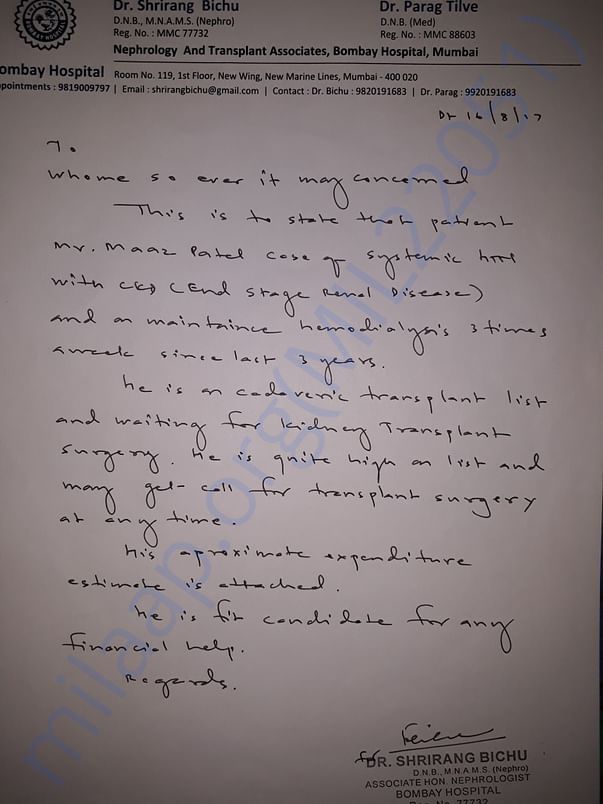 Dr. Shrirang Bichu
D.N.B., M.N.A.M.S. (Nephro)
Reg. No. : MMC 77732
Dr. Parag Tilve
D.N.B. (Med)
Reg. No. : MMC 88603
Nephrology And Transplant Associates, Bombay Hospital, Mumbai
ombay Hospital Room No. 119, 1st Floor, New Wing, New Marine Lines, Mumbai - 400 020
pointments : 9819009797 | Email : shrirangbichu@gmail.com | Contact : Dr. Bichu : 9820191683 | Dr. Parag : 9920191683
Dt 16/8/17
To
whome so ever it may concerned
This is to state that patient
Mr. Maaz Patel case of systemic HTN
with CKD (End stage Renal Disease)
and on maintaince hemodialysis 3 times
aweek since last 3 years.
He is on cadaveric transplant list
and waiting for kidney Transplant
surgery. He is quite high on list and
may get call for transplant surgery
at any time.
His aproximate expenditure
estimate is attached.
He is fit candidate for any
financial help.
Regards.
for
DR. SHRIRANG BICHU
D.N.B., M.N.A.M.S. (Nephro)
ASSOCIATE HON. NEPHROLOGIST
BOMBAY HOSPITAL
Reg. No. 77732
milaap.org(MIL22051)